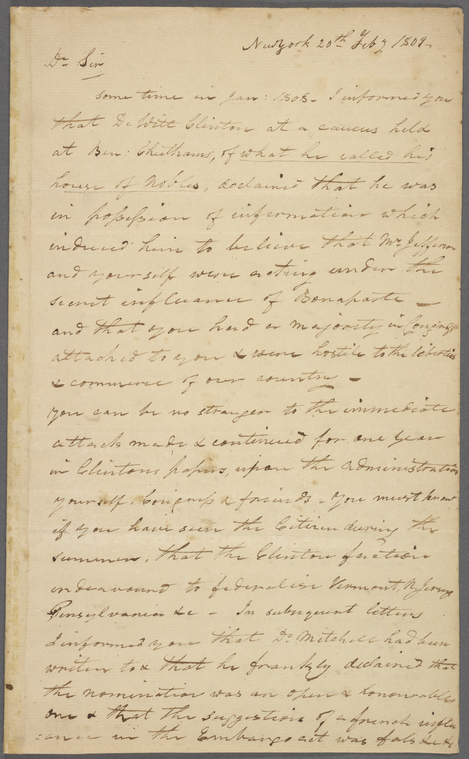 New York 20th Feby 1809.
Dr Sir
some time in Jan: 1808 - I informed you
that De Witt Clinton at a caucus held
at Ben: Cheethams, of what he called his
house of Nobles, declaired that he was
in possession of information which
induced him to believe that Mr Jefferson
and yourself were acting under the
secret influance of Bonaparte —
and that you had a majority in Congress
attached to you & were hostile to the liberties
& commerce of our country —
you can be no stranger to the immediate
attack made & continued for one year
in Clintons papers, upon the administration
yourself, Congress & friends - you must know
if you have seen the Citizen during the
summer, that the Clinton faction
endeavoured to federalise Vermont, N. Jersey
Pensylvania &c - In subsequent letters
I informed you that Dr Mitchell had been
writen to & that he frankly declaired that
the nomination was an open & honourable
one & that the suggestion of a french influ
ence in the Embargo act was false &